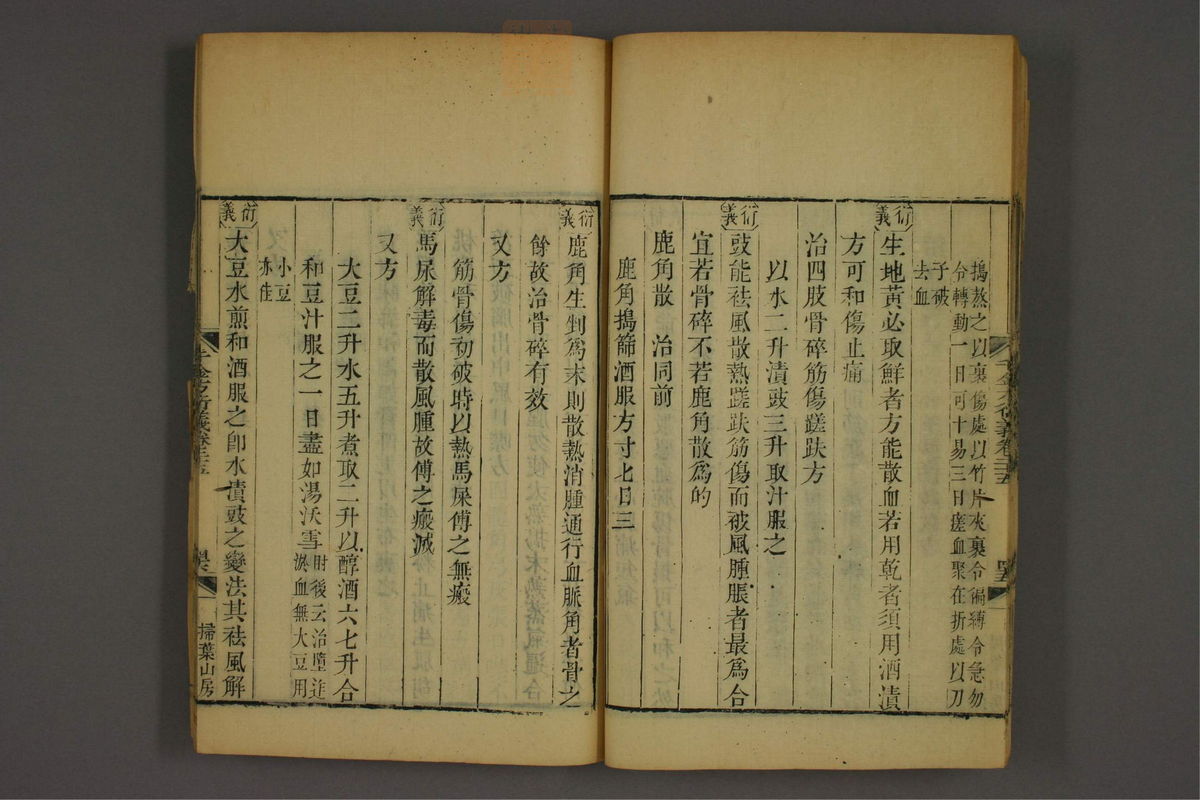 搗蒸之以裹傷處以竹片夾裹令徧縛令急勿
令轉動一日可十易三日瘥血聚在折處以刀
子破
去血
衍義
生地黃必取鮮者方能散血若用乾者須用酒漬
方可和傷止痛
治四肢骨碎筋傷蹉趺方
以水二升漬豉三升取汁服之
衍義
豉能祛風散熱蹉趺筋傷而被風腫脹者最爲合
宜若骨碎不若鹿角散爲的
鹿角散 治同前
鹿角搗篩酒服方寸匕日三
衍義
鹿角生剉爲末則散熱消腫通行血脈角者骨之
餘故治骨碎有效
又方
筋骨傷初破時以熱馬屎傅之無瘢
衍義
馬屎解毒而散風腫故傅之瘢滅
又方
大豆二升水五升煮取二升以醇酒六七升合
和豆汁服之一日盡如湯沃雪
肘後云治墮迮
瘀血無大豆用
小豆
亦佳
衍義
大豆水煎和酒服之卽水漬豉之變法其祛風解
千金方衍義卷二十五
掃葉山房